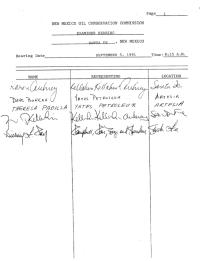 Page 1
NEW MEXICO OIL CONSERVATION COMMISSION
EXAMINER HEARING
SANTA FE, NEW MEXICO
Hearing Date SEPTEMBER 5, 1991 Time: 8:15 A.M.
NAME REPRESENTING LOCATION
Karen Aubrey Kellahin Kellahin & Aubrey Santa Fe
YATES PETROLEUM ARTESIA
THERESA PADILLA YATES PETROLEUM ARTESIA
Kellahin Kellahin Aubrey Santa Fe
Campbell, Santa Fe